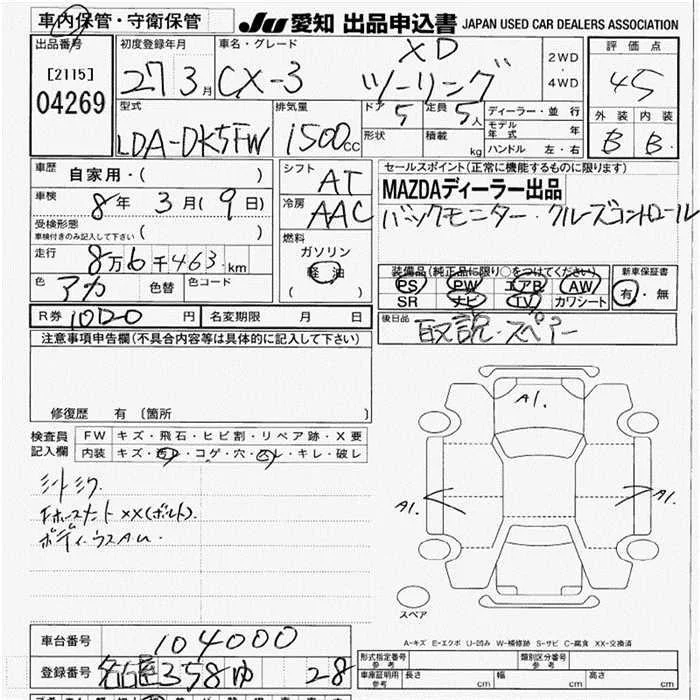 車内保管・守衛保管
JU 愛知 出品申込書 JAPAN USED CAR DEALERS ASSOCIATION
出品番号
[2115]
04269
初度登録年月
27 3月
車名・グレード
CX-3 XD ツーリング
2WD
・
4WD
評価点
4.5
外装 内装
B B
型式
LDA-DK5FW
排気量
1500cc
ドア 5
定員 5人
形状
積載 kg
ディーラー・並行
モデル年式 年
ハンドル 左・右
車歴 自家用・( )
車検 8年 3月(9日)
受検形態
車検付きのみ記入して下さい ( )
走行 8万6千463km
色 アカ 色替 色コード
シフト AT
冷房 AAC
燃料
ガソリン
軽油
( )
セールスポイント(正常に機能するものに限ります)
MAZDAディーラー出品
バックモニター・クルーズコントロール
装備品(純正品に限り○をつけてください)
PS PW エアB AW
SR ナビ TV カワシート
新車保証書
有・無
R券 10120円 名変期限 月 日
後日品 取説・スペアー
注意事項申告欄(不具合内容等は具体的に記入して下さい)
修復歴 有 〔箇所 〕
検査員記入欄
FW キズ・飛石・ヒビ割・リペア跡・X要
内装 キズ・コゲ・穴・スレ・キレ・破レ
XX(ボルト).
A1.
A1.
A1.
スペア
A-キズ E-エクボ U-凹み W-補修跡 S-サビ C-腐食 XX-交換済
車台番号 104000
登録番号 名古屋 358 ゆ 28
形式指定番号
参考
類別区分番号
参考
車庫証明用
参考
長さ cm 幅 cm 高さ cm